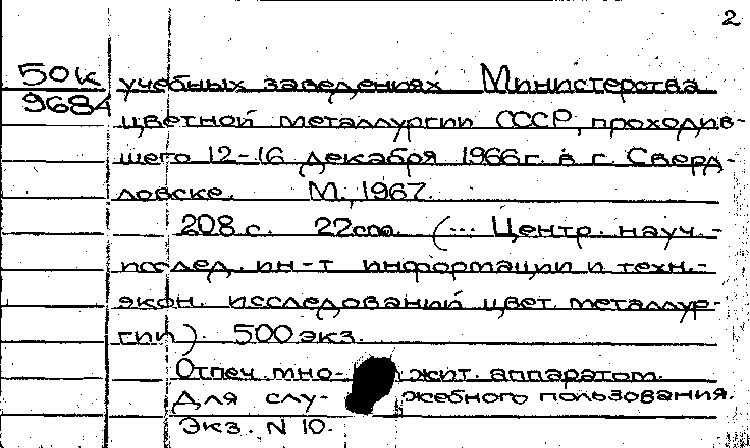 2
50к учебных заведениях Министерства
9684 цветной металлургии СССР, проходив-
шего 12-16 декабря 1966г. в г. Сверд-
ловске. М., 1967.
208 с. 22см. (... Центр. науч.-
исслед. ин-т информации и техн.-
экон. исследований цвет. металлур-
гии). 500 экз.
Отпеч. мно- жит. аппаратом.
Для слу- жебного пользования.
Экз. N 10.